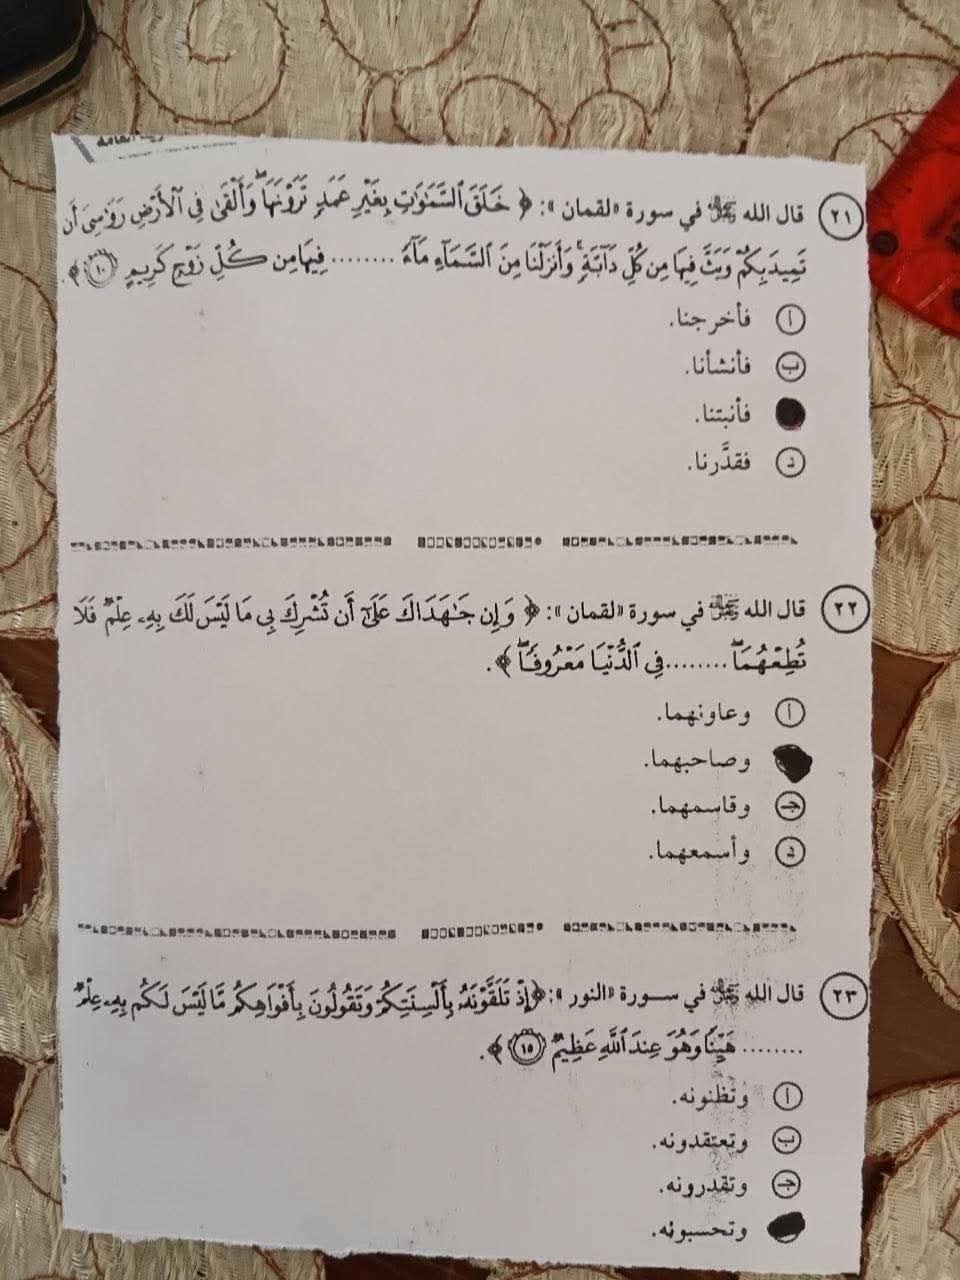 ٢١ قال الله ﷻ في سورة «لقمان»: ﴿ خَلَقَ ٱلسَّمَٰوَٰتِ بِغَيْرِ عَمَدٍ تَرَوْنَهَاۖ وَأَلْقَىٰ فِى ٱلْأَرْضِ رَوَٰسِىَ أَن
تَمِيدَ بِكُمْ وَبَثَّ فِيهَا مِن كُلِّ دَآبَّةٍۚ وَأَنزَلْنَا مِنَ ٱلسَّمَآءِ مَآءً ........ فِيهَا مِن كُلِّ زَوْجٍ كَرِيمٍ ١٠ ﴾.
أ فأخرجنا.
ب فأنشأنا.
فأنبتنا.
د فقدَّرنا.
٢٢ قال الله ﷻ في سورة «لقمان»: ﴿ وَإِن جَٰهَدَاكَ عَلَىٰٓ أَن تُشْرِكَ بِى مَا لَيْسَ لَكَ بِهِۦ عِلْمٌ فَلَا
تُطِعْهُمَاۖ ........ فِى ٱلدُّنْيَا مَعْرُوفًاۖ ﴾.
أ وعاونهما.
وصاحبهما.
جـ وقاسمهما.
د وأسمعهما.
٢٣ قال الله ﷻ في سورة «النور»: ﴿إِذْ تَلَقَّوْنَهُۥ بِأَلْسِنَتِكُمْ وَتَقُولُونَ بِأَفْوَاهِكُم مَّا لَيْسَ لَكُم بِهِۦ عِلْمٌ
........ هَيِّنًا وَهُوَ عِندَ ٱللَّهِ عَظِيمٌ ١٥ ﴾.
أ وتظنونه.
ب وتعتقدونه.
جـ وتقدرونه.
وتحسبونه.